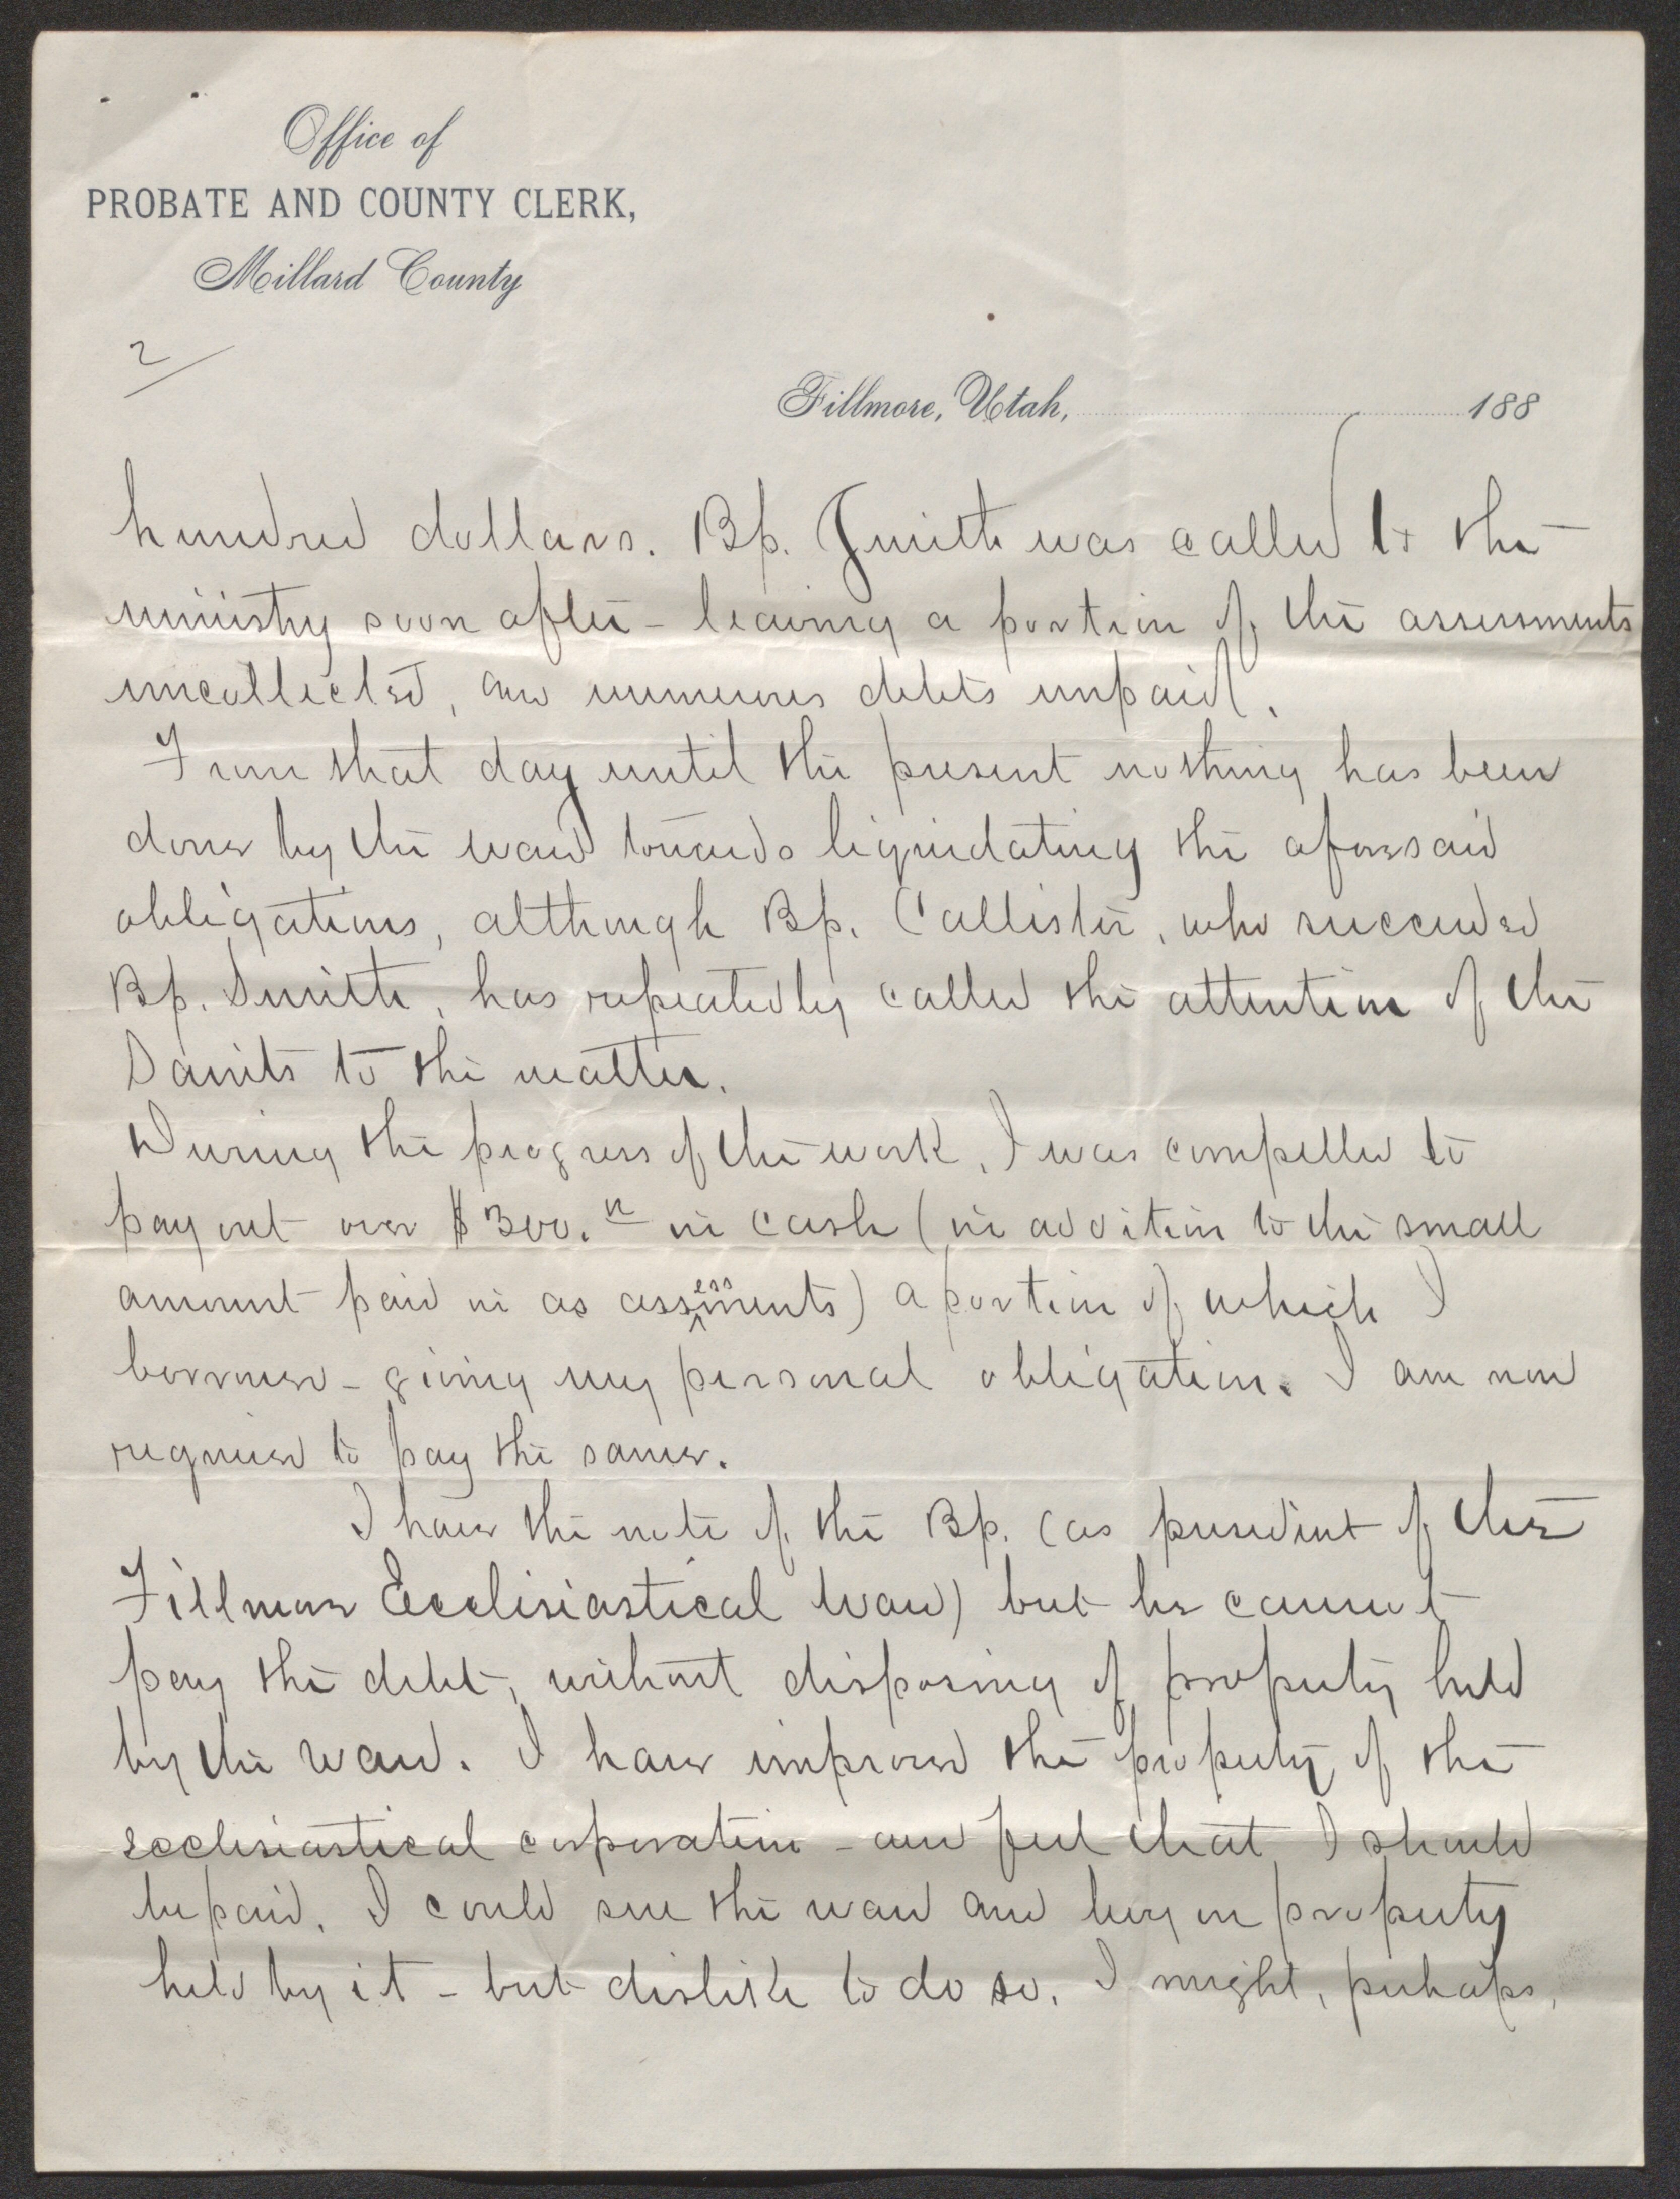 Office of
PROBATE AND COUNTY CLERK,
Millard County
2
Fillmore, Utah, 188
hundred dollars. Bp. Smith was called to the
ministry soon after - leaving a portion of the assessments
uncollected, and numerous debts unpaid.
From that day until the present nothing has been
done by the ward towards liquidating the aforesaid
obligations, although Bp. Callister, who succeeded
Bp. Smith, has repeatedly called the attention of the
Saints to the matter.
During the progress of the work, I was compelled to
pay out over $300. in cash (in addition to the small
amount paid in as assessments) a portion of which I
borrowed - giving my personal obligation. I am now
required to pay the same.
I have the note of the Bp. (as president of the
Fillmore Ecclesiastical Ward) but he cannot
pay the debt, without disposing of property held
by the ward. I have improved the property of the
ecclesiastical corporation - and feel that I should
be paid. I could sue the ward and levy on property
held by it - but dislike to do so. I might, perhaps,